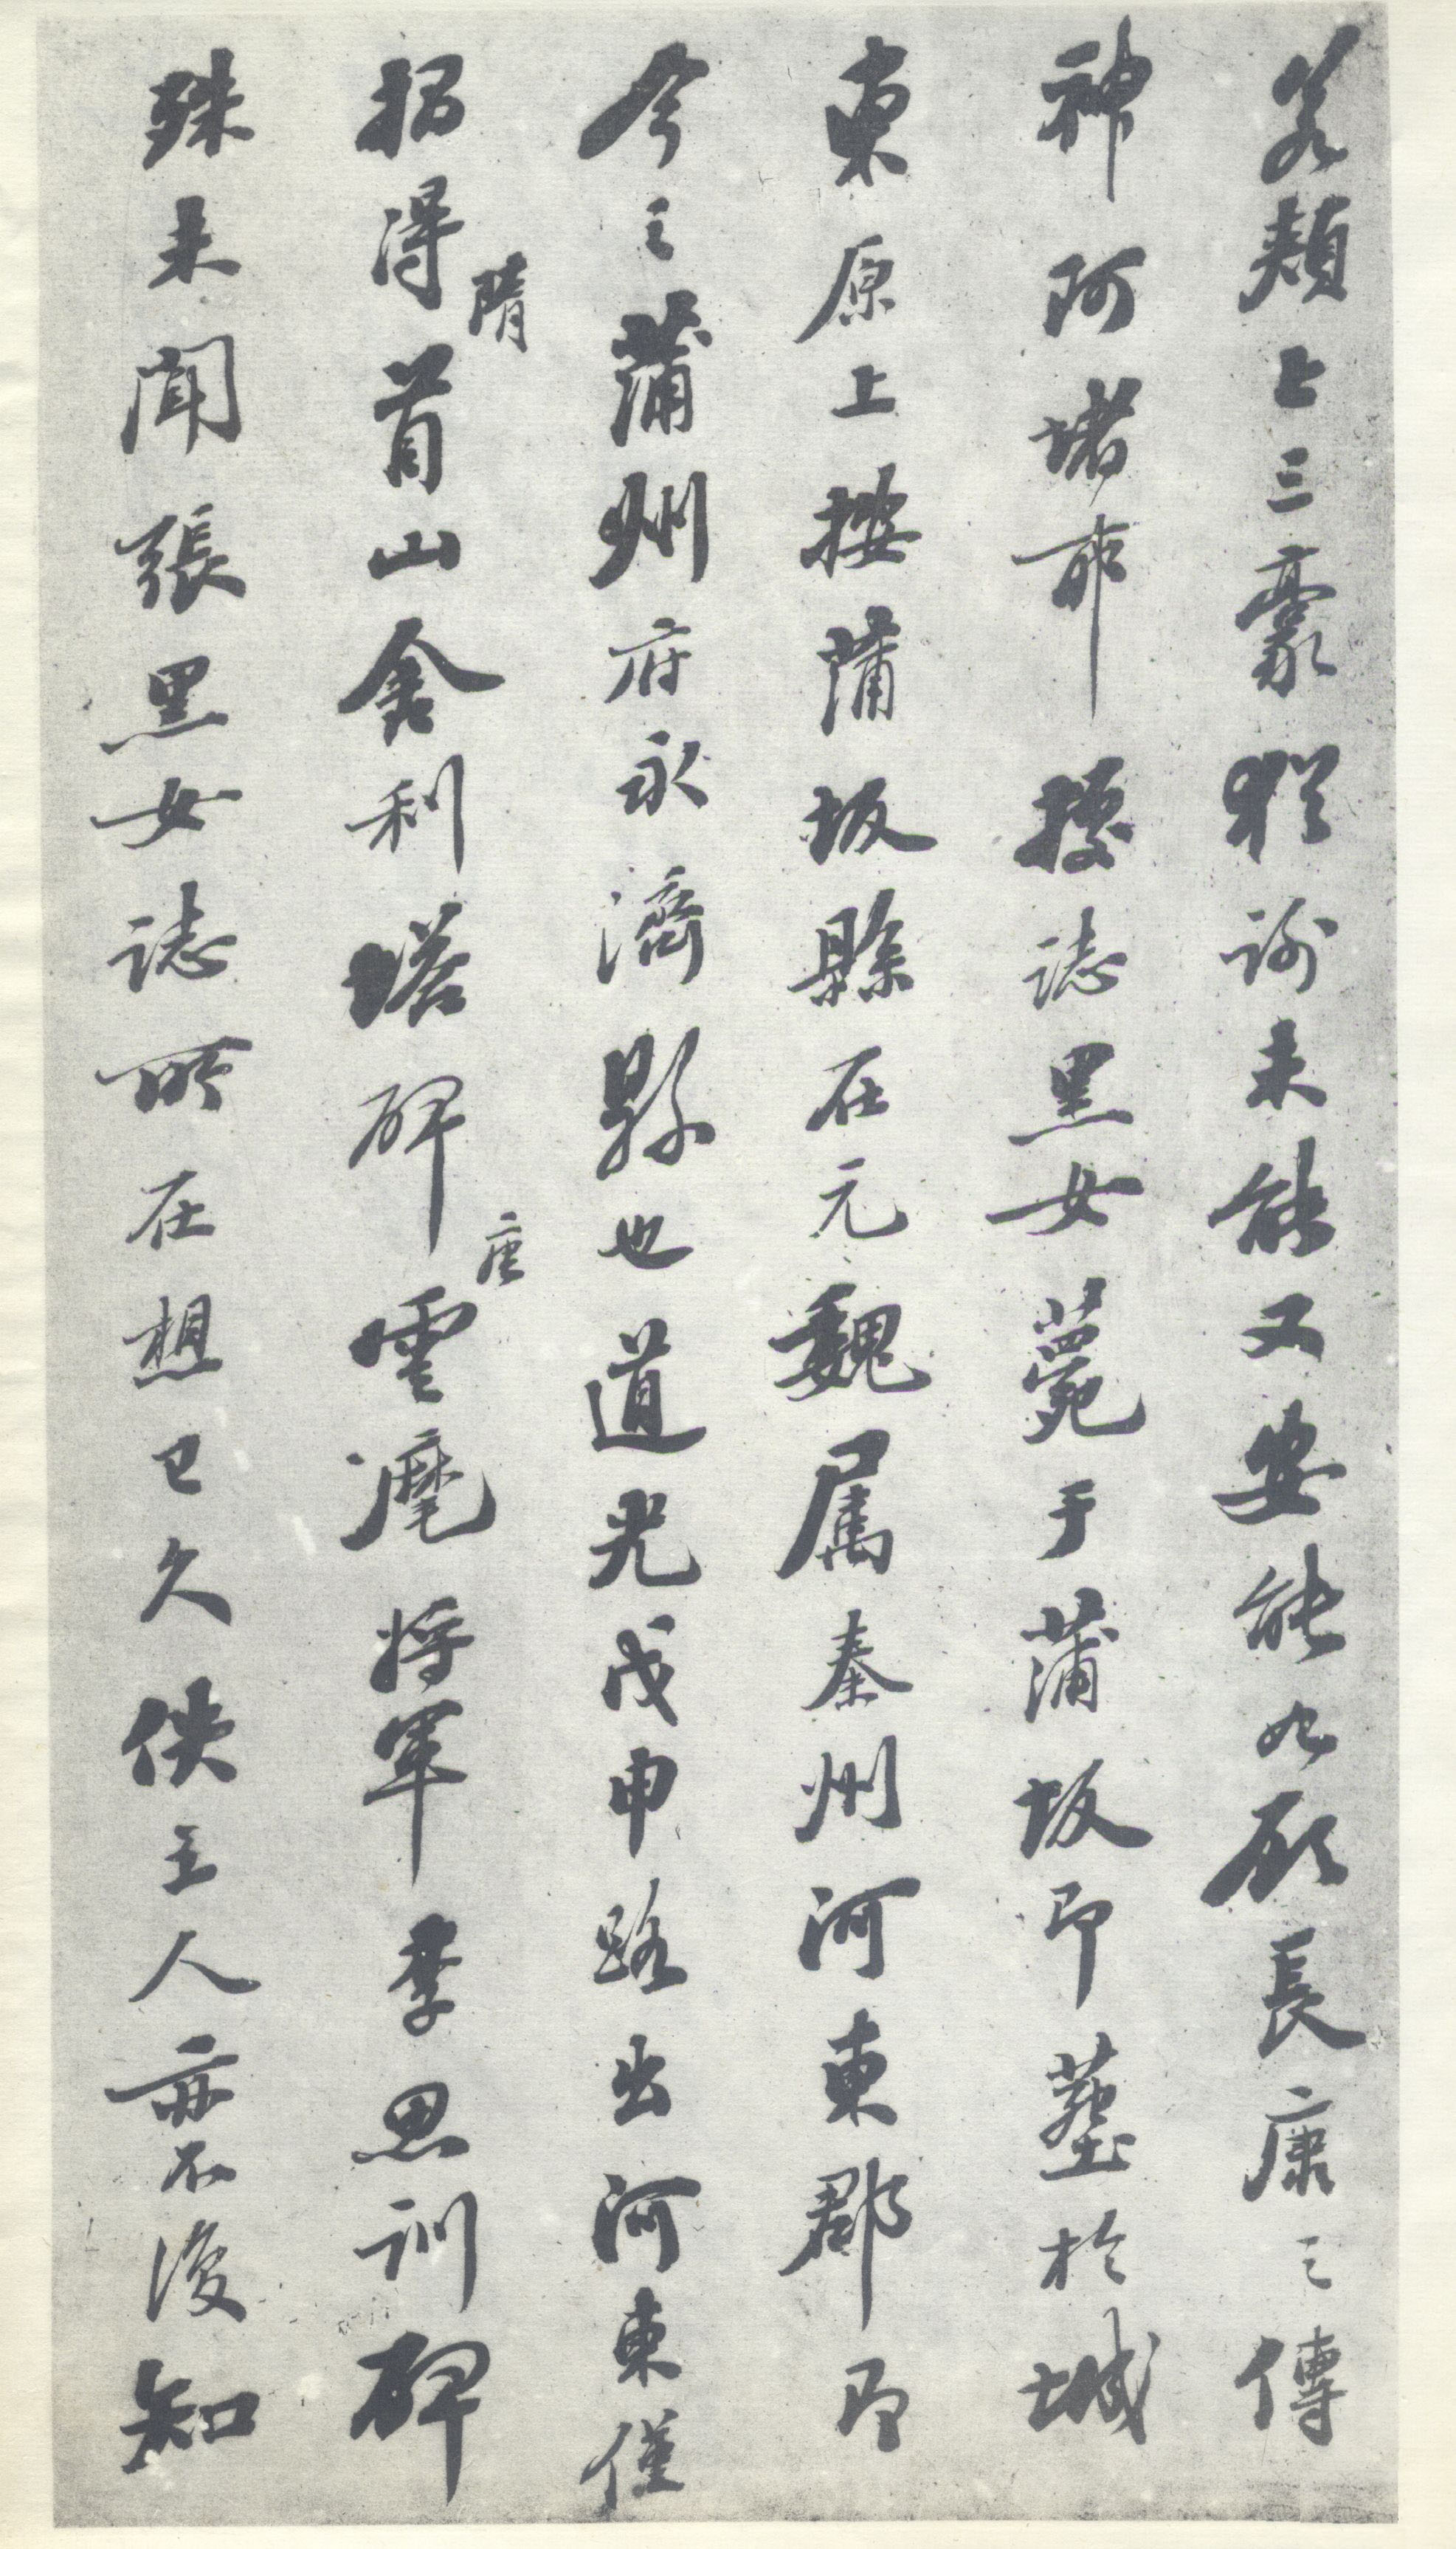 若頰上三豪猶謝未能又安能如顧長康之傳
神阿堵耶 據誌黑女薨于蒲坂即塟於城
東原上按蒲坂縣在元魏属秦州河東郡即
今之蒲州府永濟縣也道光戊申路出河東僅
拓得隋首山舍利塔碑唐雲麾將軍李思訓碑
殊未聞張黑女誌所在想已久佚土人亦不復知